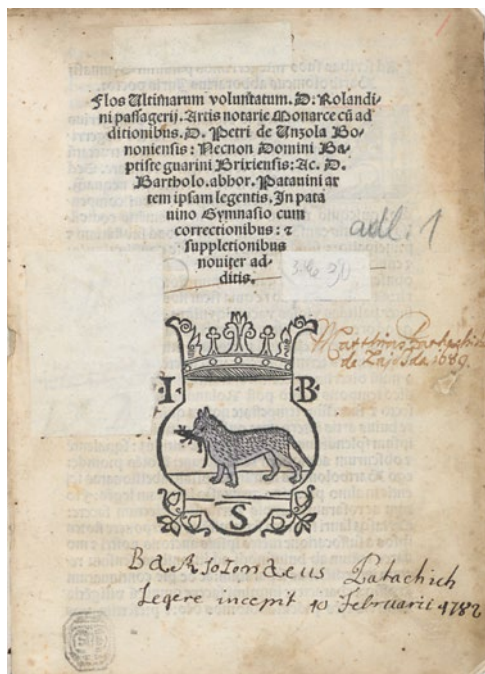 Flos Ultimarum voluntatum. D. Rolandi-
ni passagerij. Artis notarie Monarce cũ ad
ditionibus. D. Petri de Unzola Bo-
noniensis: Necnon Domini Ba-
ptiste guarini Brixiensis: Ac. D.
Bartholo. abhor. Patauini ar
tem ipsam legentis. In pata
uino Gymnasio cum
correctionibus: ⁊
suppletionibus
nouiter ad-
ditis.
adl. 1
de 1689.
I B
S
Bartolomaeus Patachich
Legere incepit 10 Februarii 1782